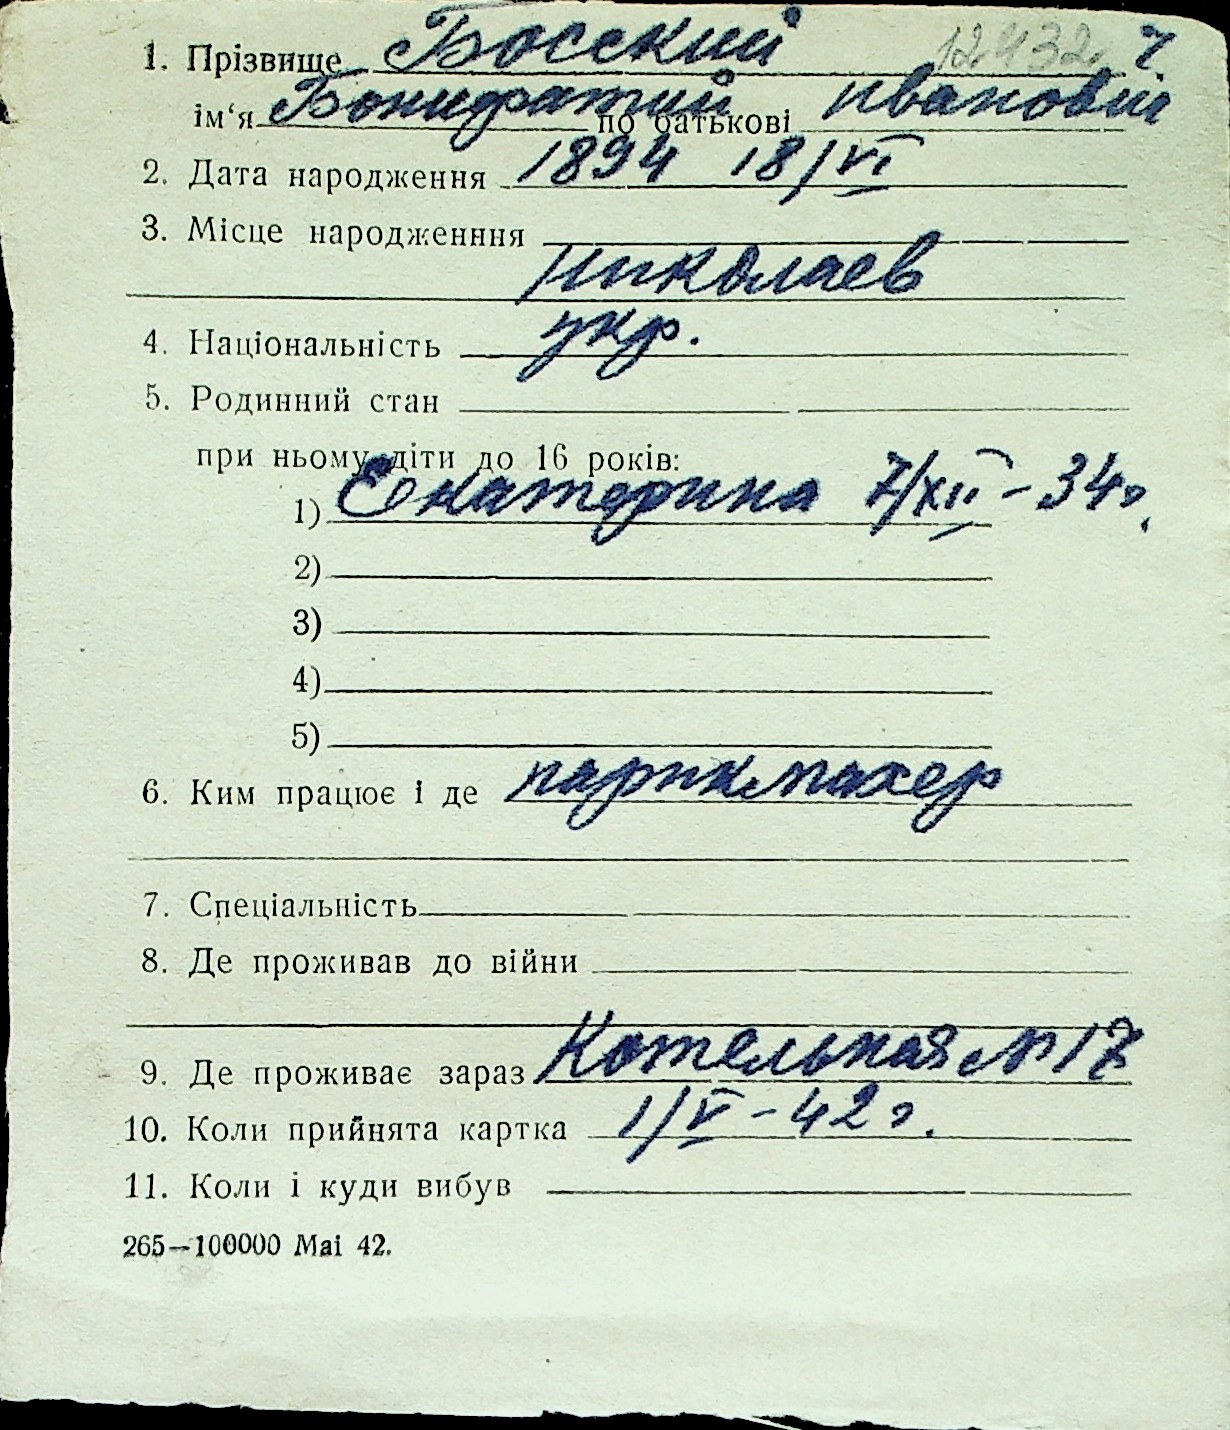 1. Прізвище Босский 12432 ч
ім'я Бонифатий по батькові Иванович
2. Дата народження 1894 18/VI
3. Місце народженння
Николаев
4. Національність укр.
5. Родинний стан
при ньому діти до 16 років:
1) Екатерина 7/XII - 34 г.
2)
3)
4)
5)
6. Ким працює і де парикмахер
7. Спеціальність
8. Де проживав до війни
9. Де проживає зараз Котельная № 17
10. Коли прийнята картка 1/V - 42 г.
11. Коли і куди вибув
265—100000 Mai 42.